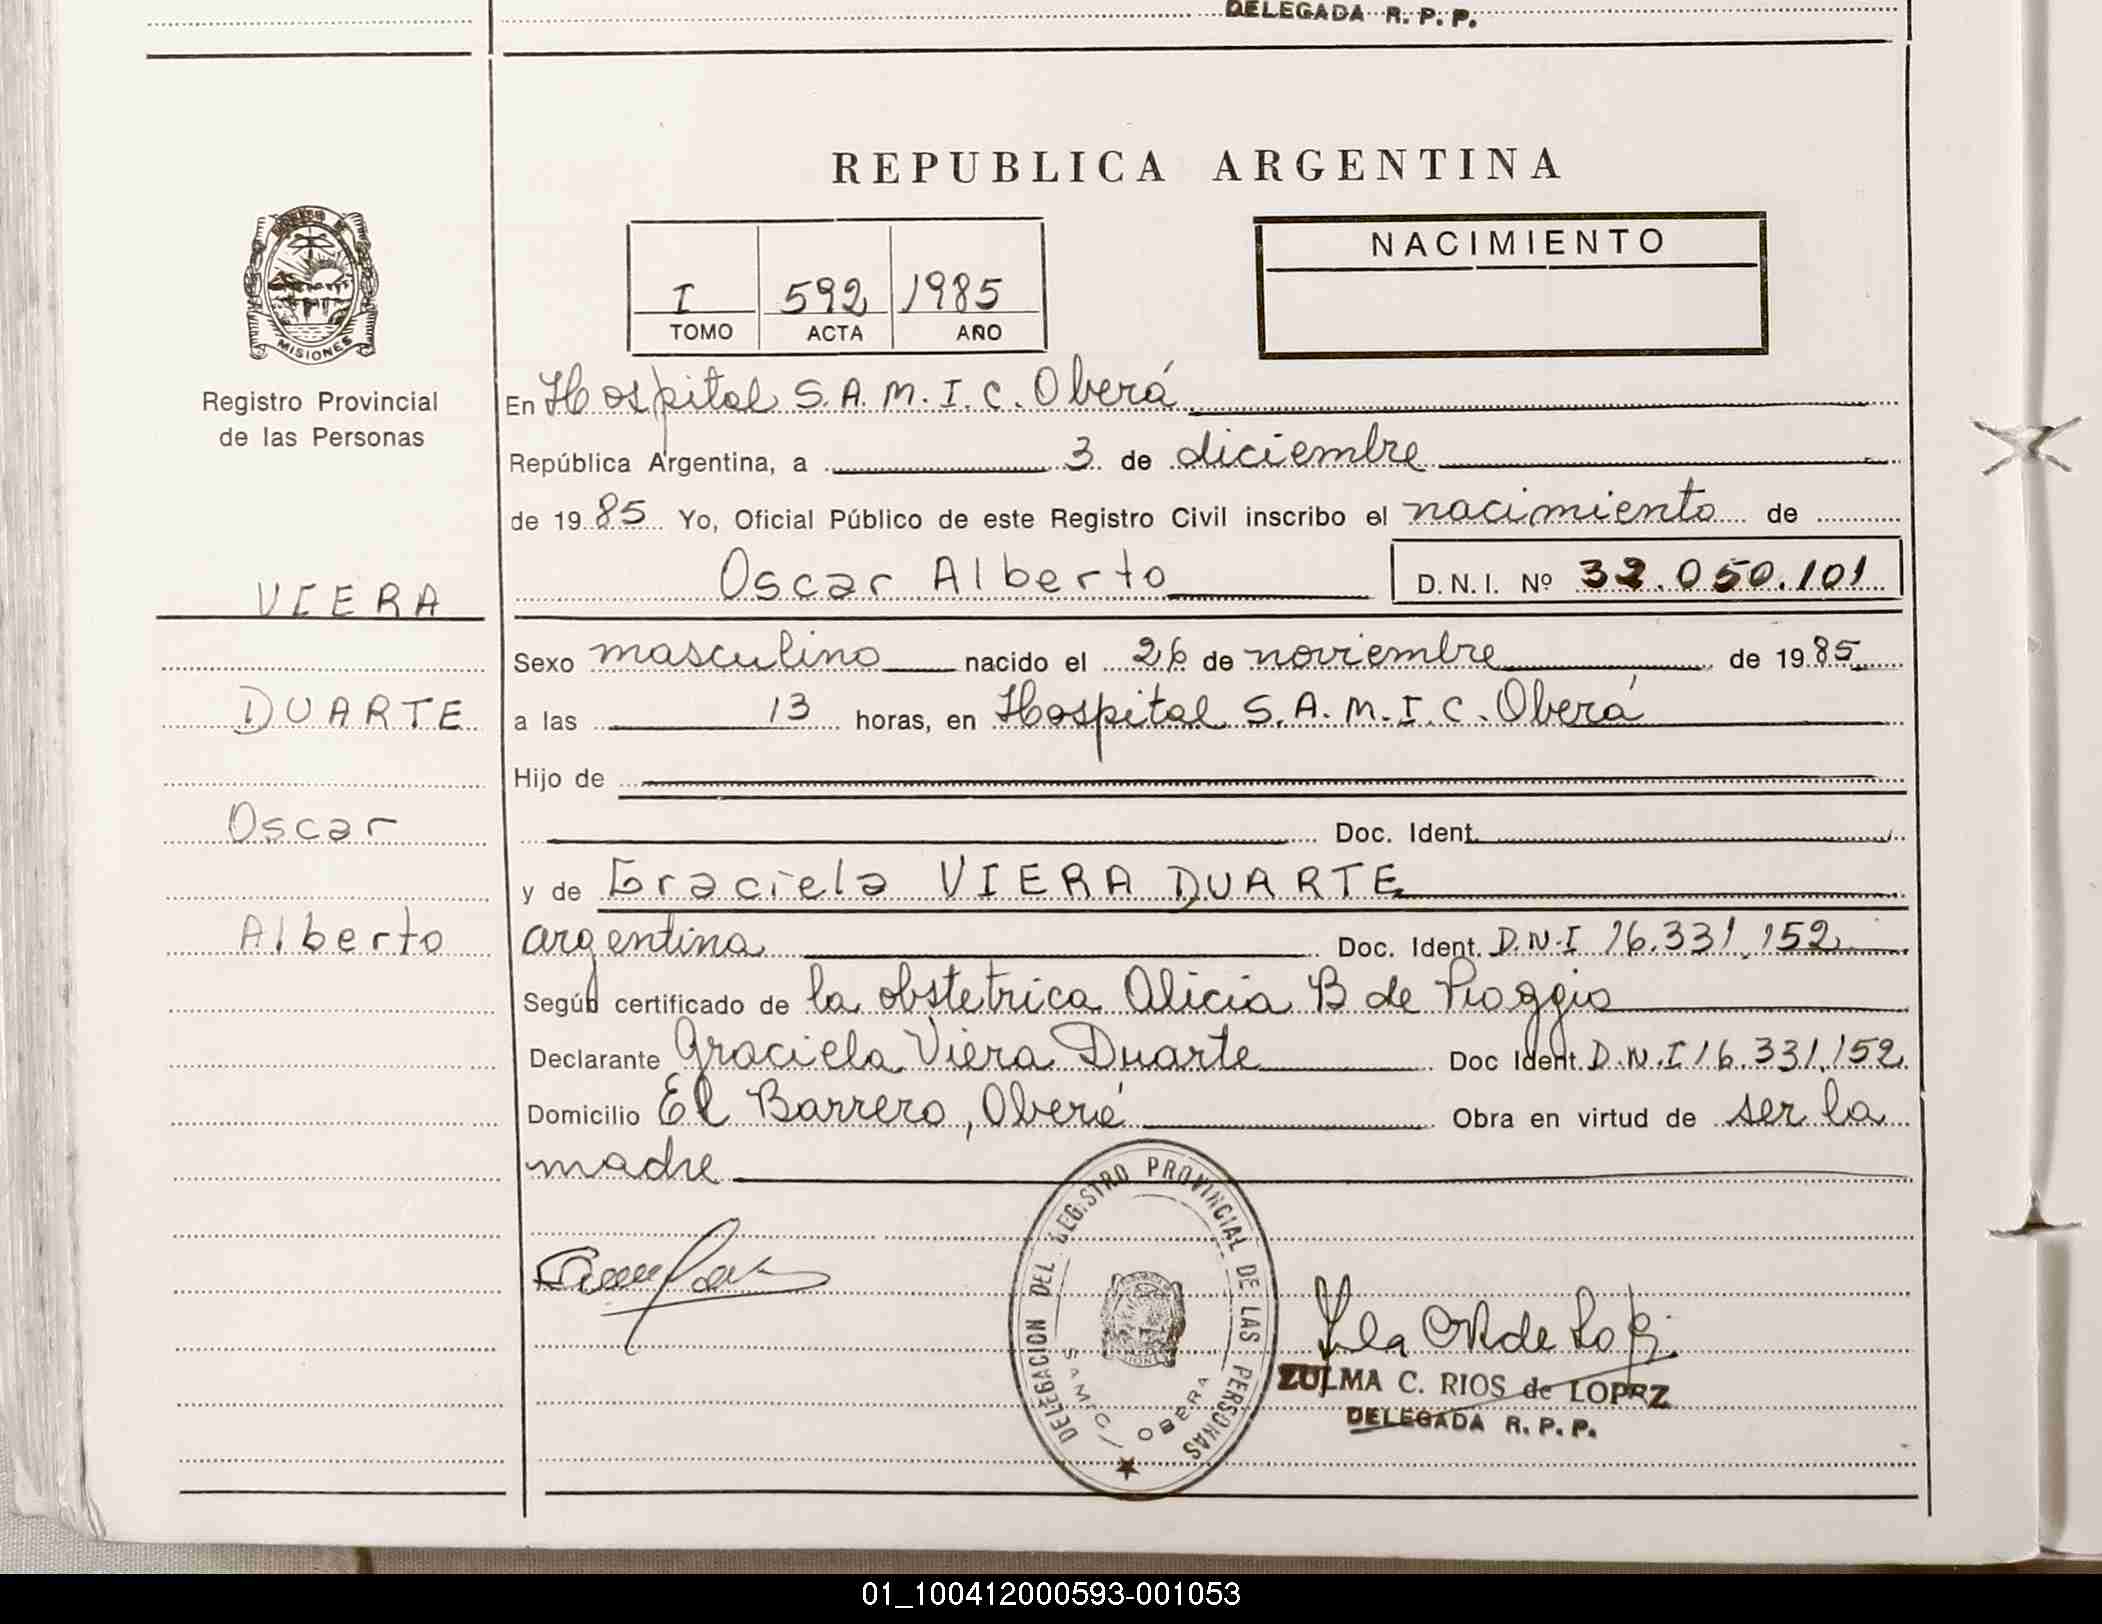 DELEGADA R. P. P.
REPUBLICA ARGENTINA
NACIMIENTO
I 592 1985
TOMO ACTA AÑO
MISIONES
Registro Provincial
de las Personas
En Hospital S.A.M.I.C. Oberá
República Argentina, a 3 de diciembre
de 1985 Yo, Oficial Público de este Registro Civil inscribo el nacimiento de
Oscar Alberto D.N.I. Nº 32.050.101
VIERA
Sexo masculino nacido el 26 de noviembre de 1985
DUARTE
a las 13 horas, en Hospital S.A.M.I.C. Oberá
Hijo de
Oscar
y Doc. Ident.
y de Graciela VIERA DUARTE
Alberto
argentina Doc. Ident. D.N.I 16.331.152
Según certificado de la obstetrica Alicia B de Pioggio
Declarante Graciela Viera Duarte Doc Ident. D.N.I 16.331.152
Domicilio El Barrero, Oberá Obra en virtud de ser la
madre
DELEGACION DEL REGISTRO PROVINCIAL DE LAS PERSONAS
SAMIC OBERA
ZULMA C. RIOS de LOPEZ
DELEGADA R. P. P.
01_100412000593-001053